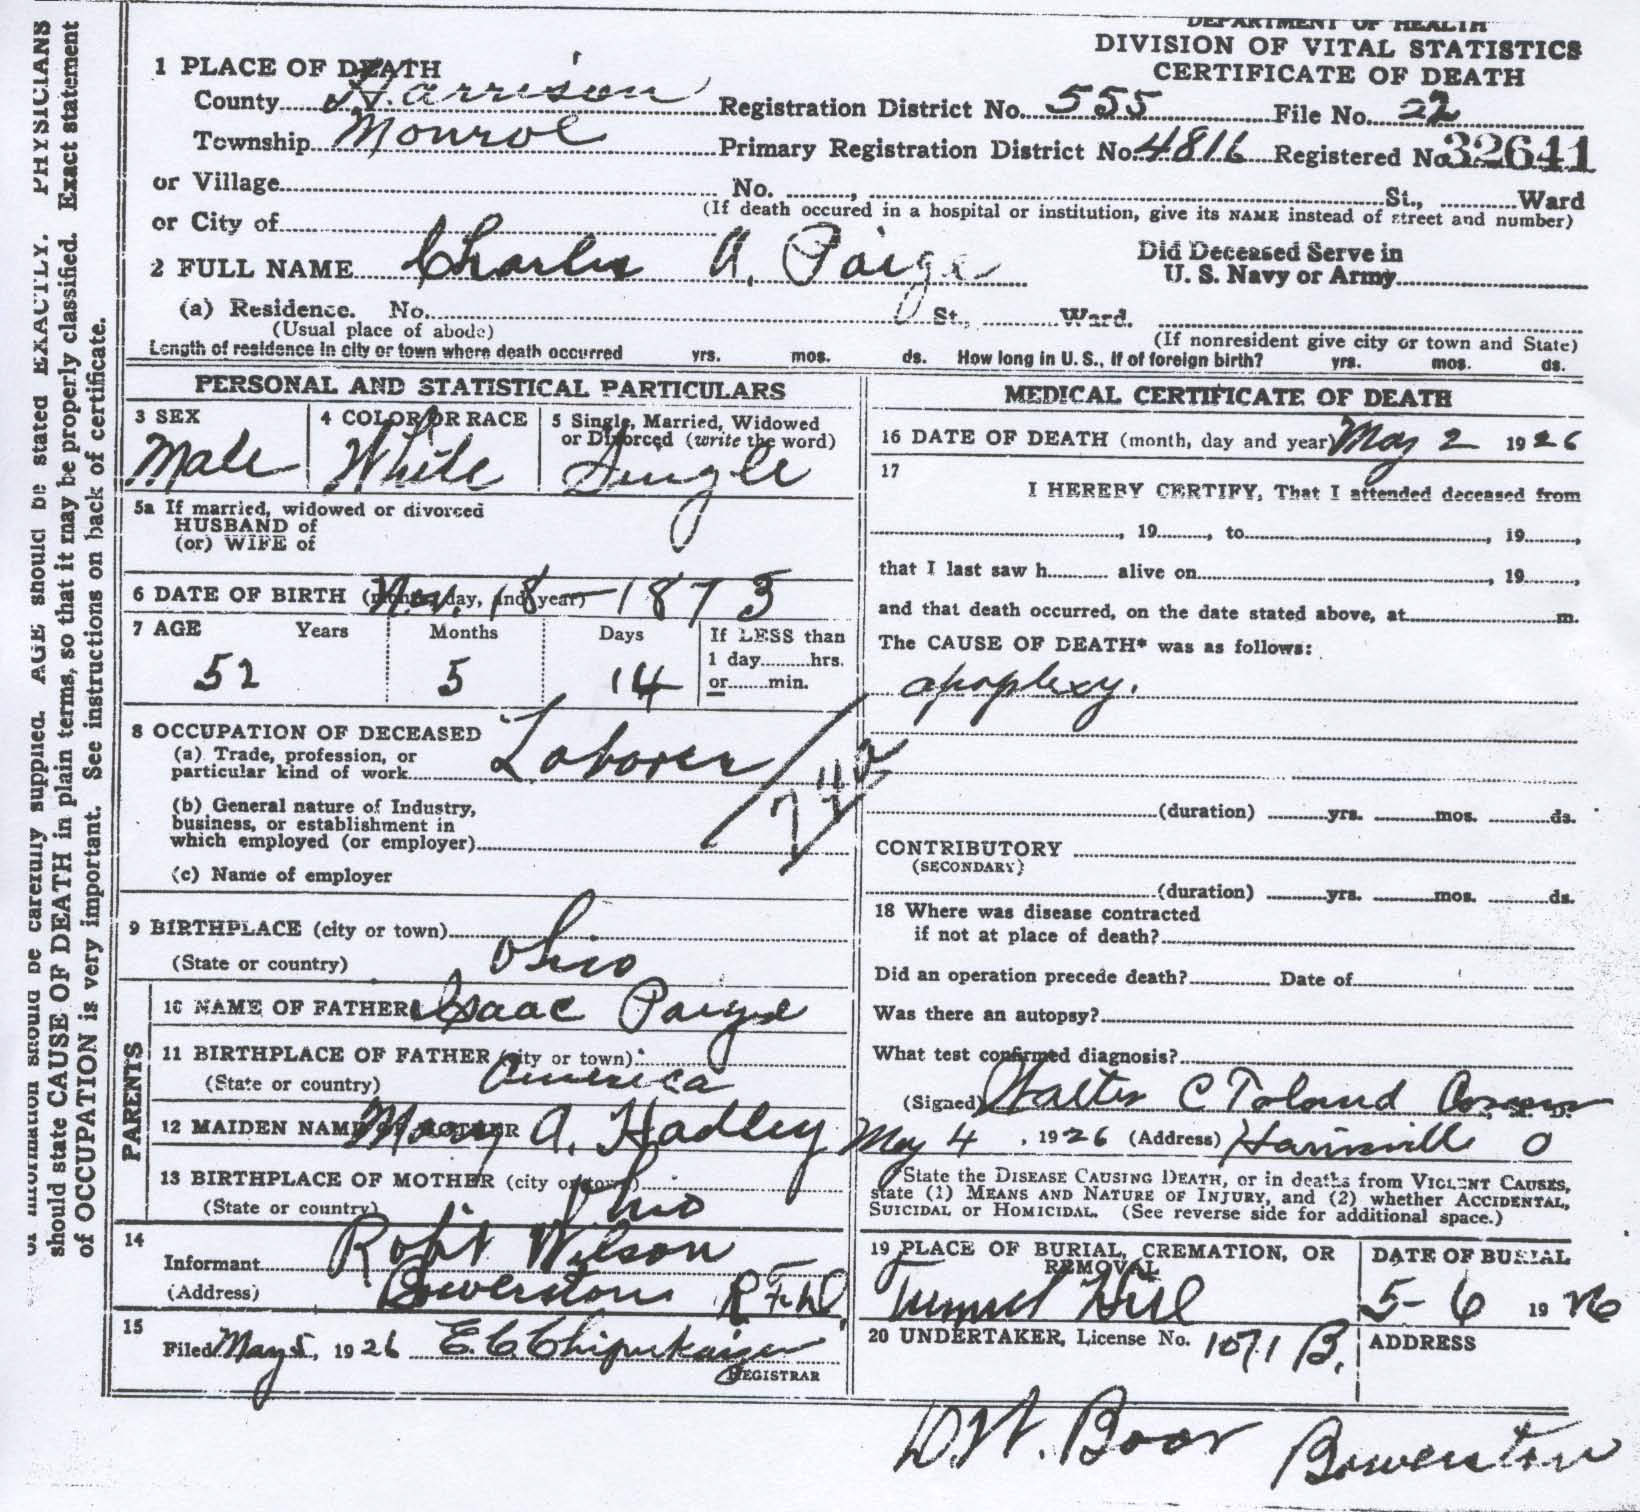 DEPARTMENT OF HEALTH
DIVISION OF VITAL STATISTICS
CERTIFICATE OF DEATH
1 PLACE OF DEATH
County Harrison Registration District No. 555 File No. 22
Township Monroe Primary Registration District No. 4816 Registered No 32641
or Village No. , St., Ward
(If death occured in a hospital or institution, give its NAME instead of street and number)
or City of
2 FULL NAME Charles A. Paige Did Deceased Serve in U. S. Navy or Army
(a) Residence. No. St., Ward.
(Usual place of abode) (If nonresident give city or town and State)
Length of residence in city or town where death occurred yrs. mos. ds. How long in U. S., if of foreign birth? yrs. mos. ds.
PERSONAL AND STATISTICAL PARTICULARS
3 SEX 4 COLOR OR RACE 5 Single, Married, Widowed
or Divorced (write the word)
Male White Single
5a If married, widowed or divorced
HUSBAND of
(or) WIFE of
6 DATE OF BIRTH (month, day, and year) Nov. 18 - 1873
7 AGE Years Months Days If LESS than
1 day hrs.
52 5 14 or min.
8 OCCUPATION OF DECEASED
(a) Trade, profession, or
particular kind of work Laborer
(b) General nature of Industry,
business, or establishment in
which employed (or employer)
(c) Name of employer
9 BIRTHPLACE (city or town)
(State or country) Ohio
PARENTS
10 NAME OF FATHER Isaac Paige
11 BIRTHPLACE OF FATHER (city or town)
(State or country) America
12 MAIDEN NAME OF MOTHER Mary A. Hadley
13 BIRTHPLACE OF MOTHER (city or town)
(State or country) Ohio
14
Informant Robt Wilson
(Address) Bowerston R.F.D.
15
Filed May 5, 1926 E. C.
REGISTRAR
MEDICAL CERTIFICATE OF DEATH
16 DATE OF DEATH (month, day and year) May 2 1926
17
I HEREBY CERTIFY, That I attended deceased from
, 19 , to , 19 ,
that I last saw h alive on , 19 ,
and that death occurred, on the date stated above, at m.
The CAUSE OF DEATH* was as follows:
apoplexy.
(duration) yrs. mos. ds.
CONTRIBUTORY
(SECONDARY)
(duration) yrs. mos. ds.
18 Where was disease contracted
if not at place of death?
Did an operation precede death? Date of
Was there an autopsy?
What test confirmed diagnosis?
(Signed) Walter C Toland Coroner M. D.
May 4, 1926 (Address) Harrisville O
State the DISEASE CAUSING DEATH, or in deaths from VIOLENT CAUSES,
state (1) MEANS AND NATURE OF INJURY, and (2) whether ACCIDENTAL,
SUICIDAL or HOMICIDAL. (See reverse side for additional space.)
19 PLACE OF BURIAL, CREMATION, OR
REMOVAL
DATE OF BURIAL
Tunnel Hill 5-6 1926
20 UNDERTAKER, License No. 1071 B. ADDRESS
D.W. Boor Bowerston
of information should be carefully supplied. AGE should be stated EXACTLY. PHYSICIANS
should state CAUSE OF DEATH in plain terms, so that it may be properly classified. Exact statement
of OCCUPATION is very important. See instructions on back of certificate.